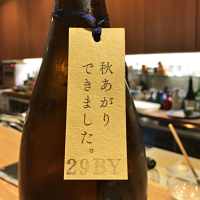 秋あがり
できました。
29BY